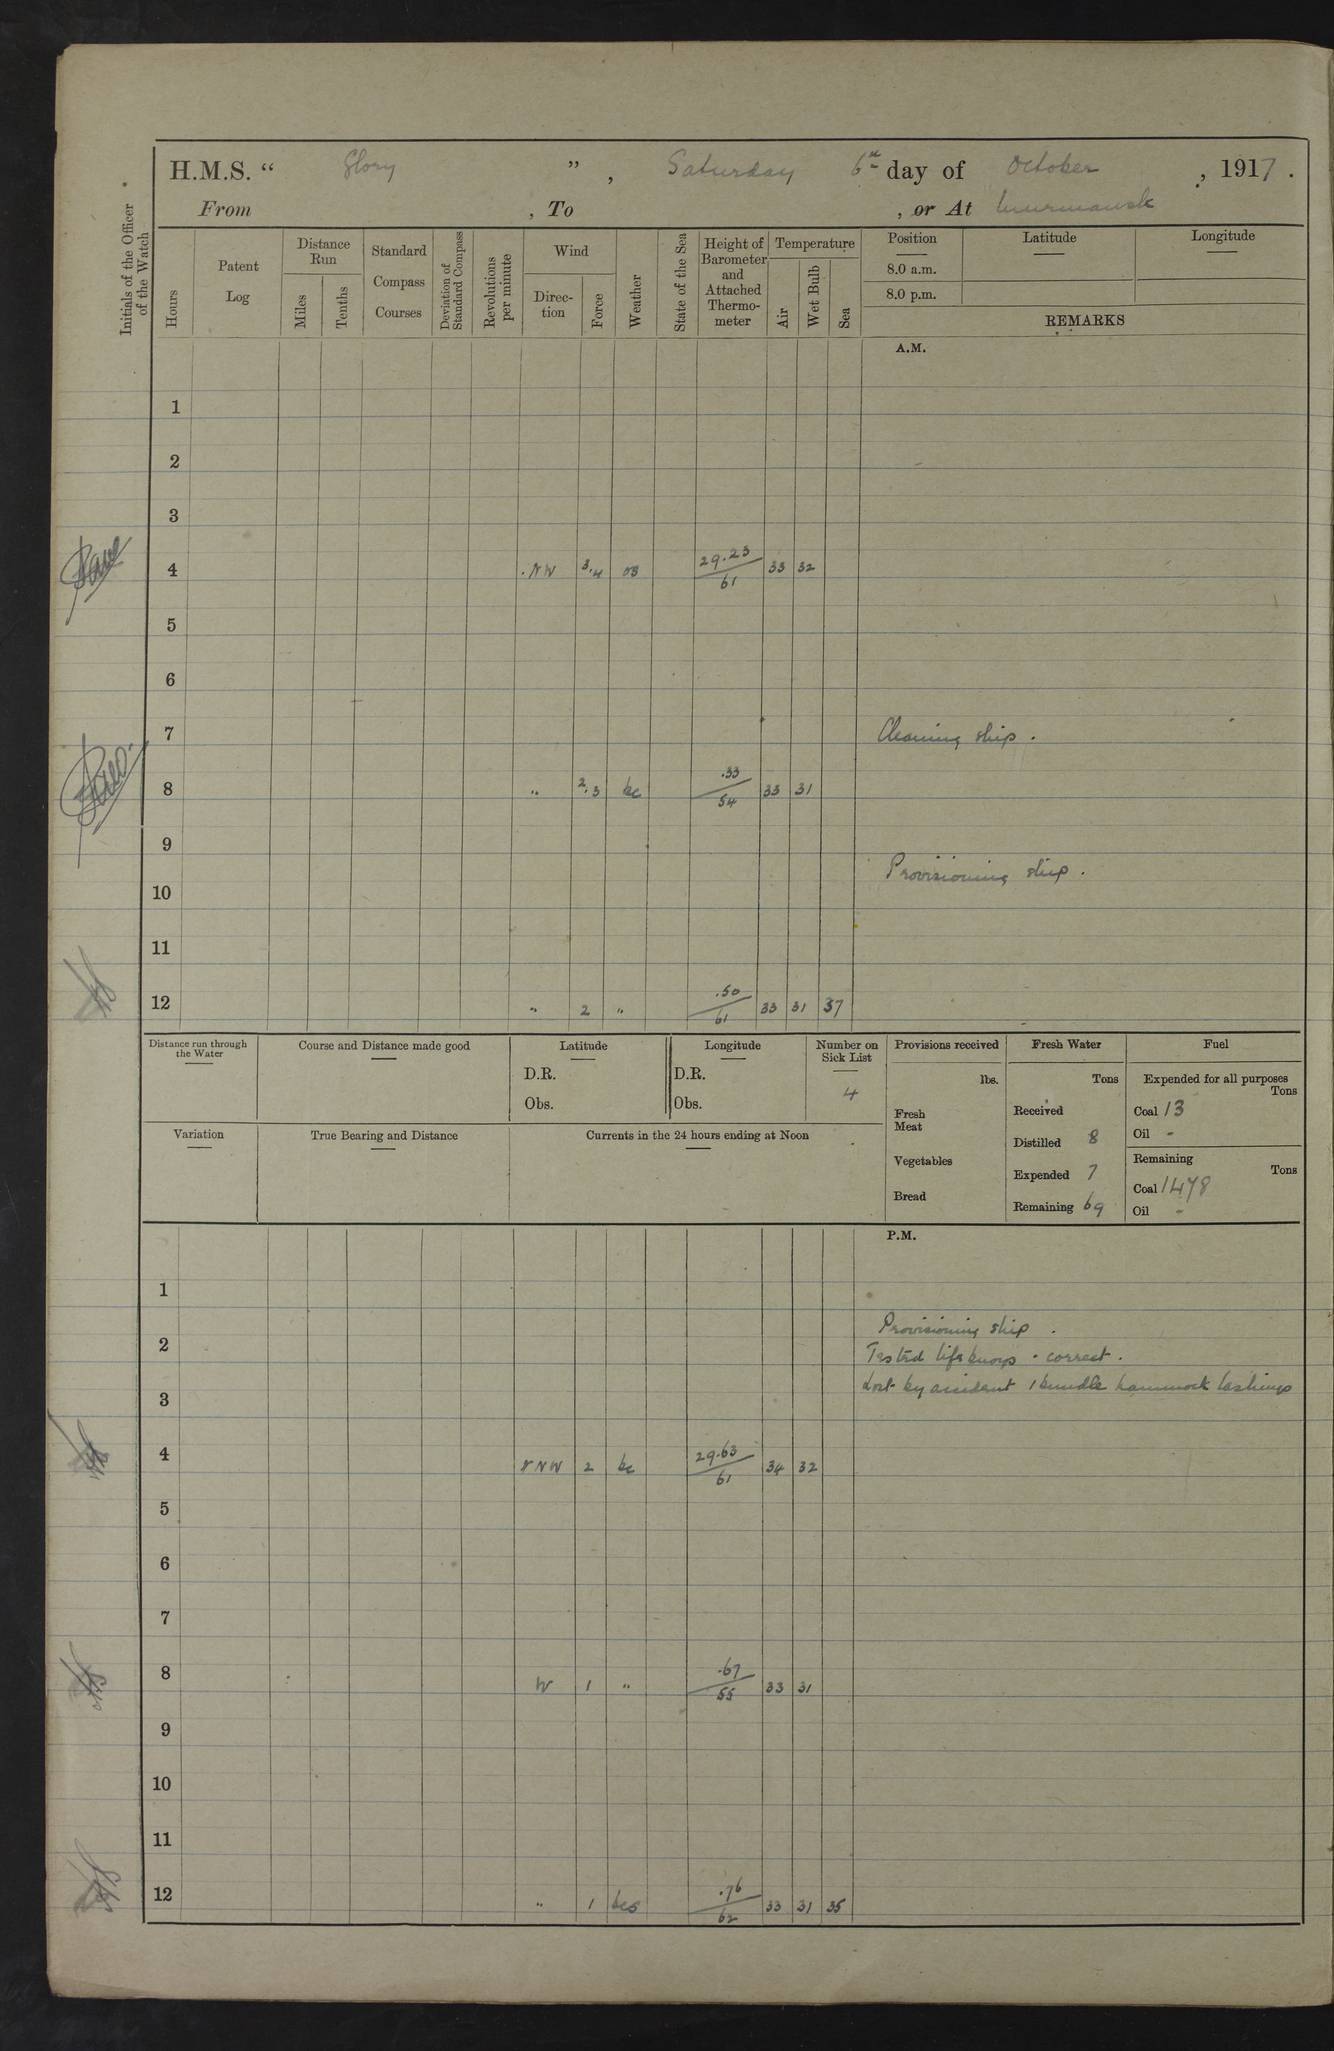 H.M.S. “ Glory ” , Saturday 6th day of October , 1917 .
From , To , or At Murmansk
Initials of the Officer of the Watch
Hours
Patent Log
Distance Run
Miles
Tenths
Standard Compass Courses
Deviation of Standard Compass
Revolutions per minute
Wind
Direc-tion
Force
Weather
State of the Sea
Height of Barometer and Attached Thermo-meter
Temperature
Air
Wet Bulb
Sea
Position Latitude Longitude
8.0 a.m.
8.0 p.m.
REMARKS
A.M.
1
2
3
4 NW 3.4 29.23/61 33 32
5
6
7 Cleaning ship .
8 " 2.3 bc .33/54 33 31
9
Provisioning ship .
10
11
12 " 2 " .50/61 33 31 37
Distance run through the Water
Course and Distance made good
Latitude
D.R.
Obs.
Longitude
D.R.
Obs.
Number on Sick List
4
Provisions received
lbs.
Fresh Meat
Vegetables
Bread
Fresh Water
Tons
Received
Distilled 8
Expended 7
Remaining 69
Fuel
Expended for all purposes
Tons
Coal 13
Oil -
Remaining
Tons
Coal 1478
Oil -
Variation
True Bearing and Distance
Currents in the 24 hours ending at Noon
P.M.
1
Provisioning ship .
2
Tested lifebuoys - correct .
Lost by accident 1 bundle hammock lashings
3
4 NNW 2 bc 29.63/61 34 32
5
6
7
8 W 1 " .67/55 33 31
9
10
11
12 " 1 bcs .76/62 33 31 35